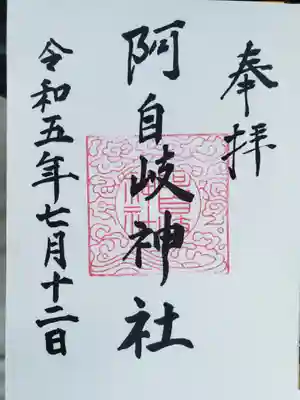 奉拝
阿自岐神社
令和五年七月十二日